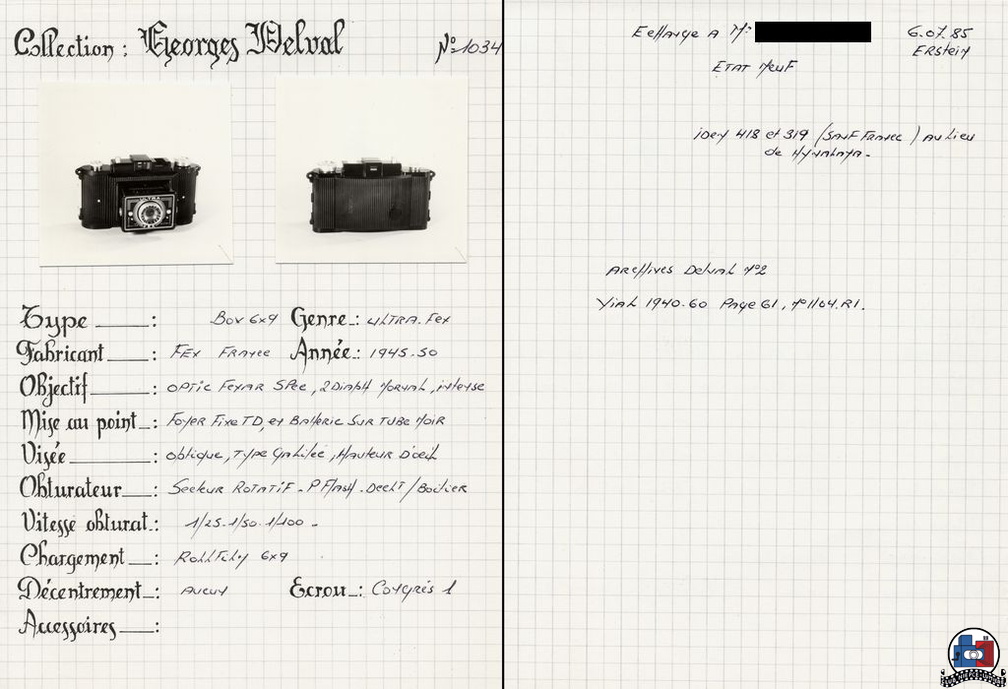 Collection : Georges Delval N°: 1034
Type : Box 6x9 Genre : ULTRA. FEX
Fabricant : FEX FRANCE Année : 1945-50
Objectif : OPTIC FEXAR SPEC, 2 DIAPH NORMAL, intense
Mise au point : FOYER FIXE TD, et BATTERIE SUR TUBE NOIR
Visée : oblique, TYPE GALILÉE, HAUTEUR D'OEIL
Obturateur : SECTEUR ROTATIF - P FLASH - DECLT / BOITIER
Vitesse obturat. : 1/25-1/50-1/100 -
Chargement : ROLLFILM 6x9
Décentrement : AUCUN Ecrou : CONGRÈS 1
Accessoires :
ECHANGE A Mr: 6.07.85
ERSTEIN
ETAT NEUF
IDEM 418 et 319 (SAUF FRANCE) AU LIEU
de
ARCHIVES DELVAL N°2
VIAL 1940-60 Page 61, N°1104.R1.